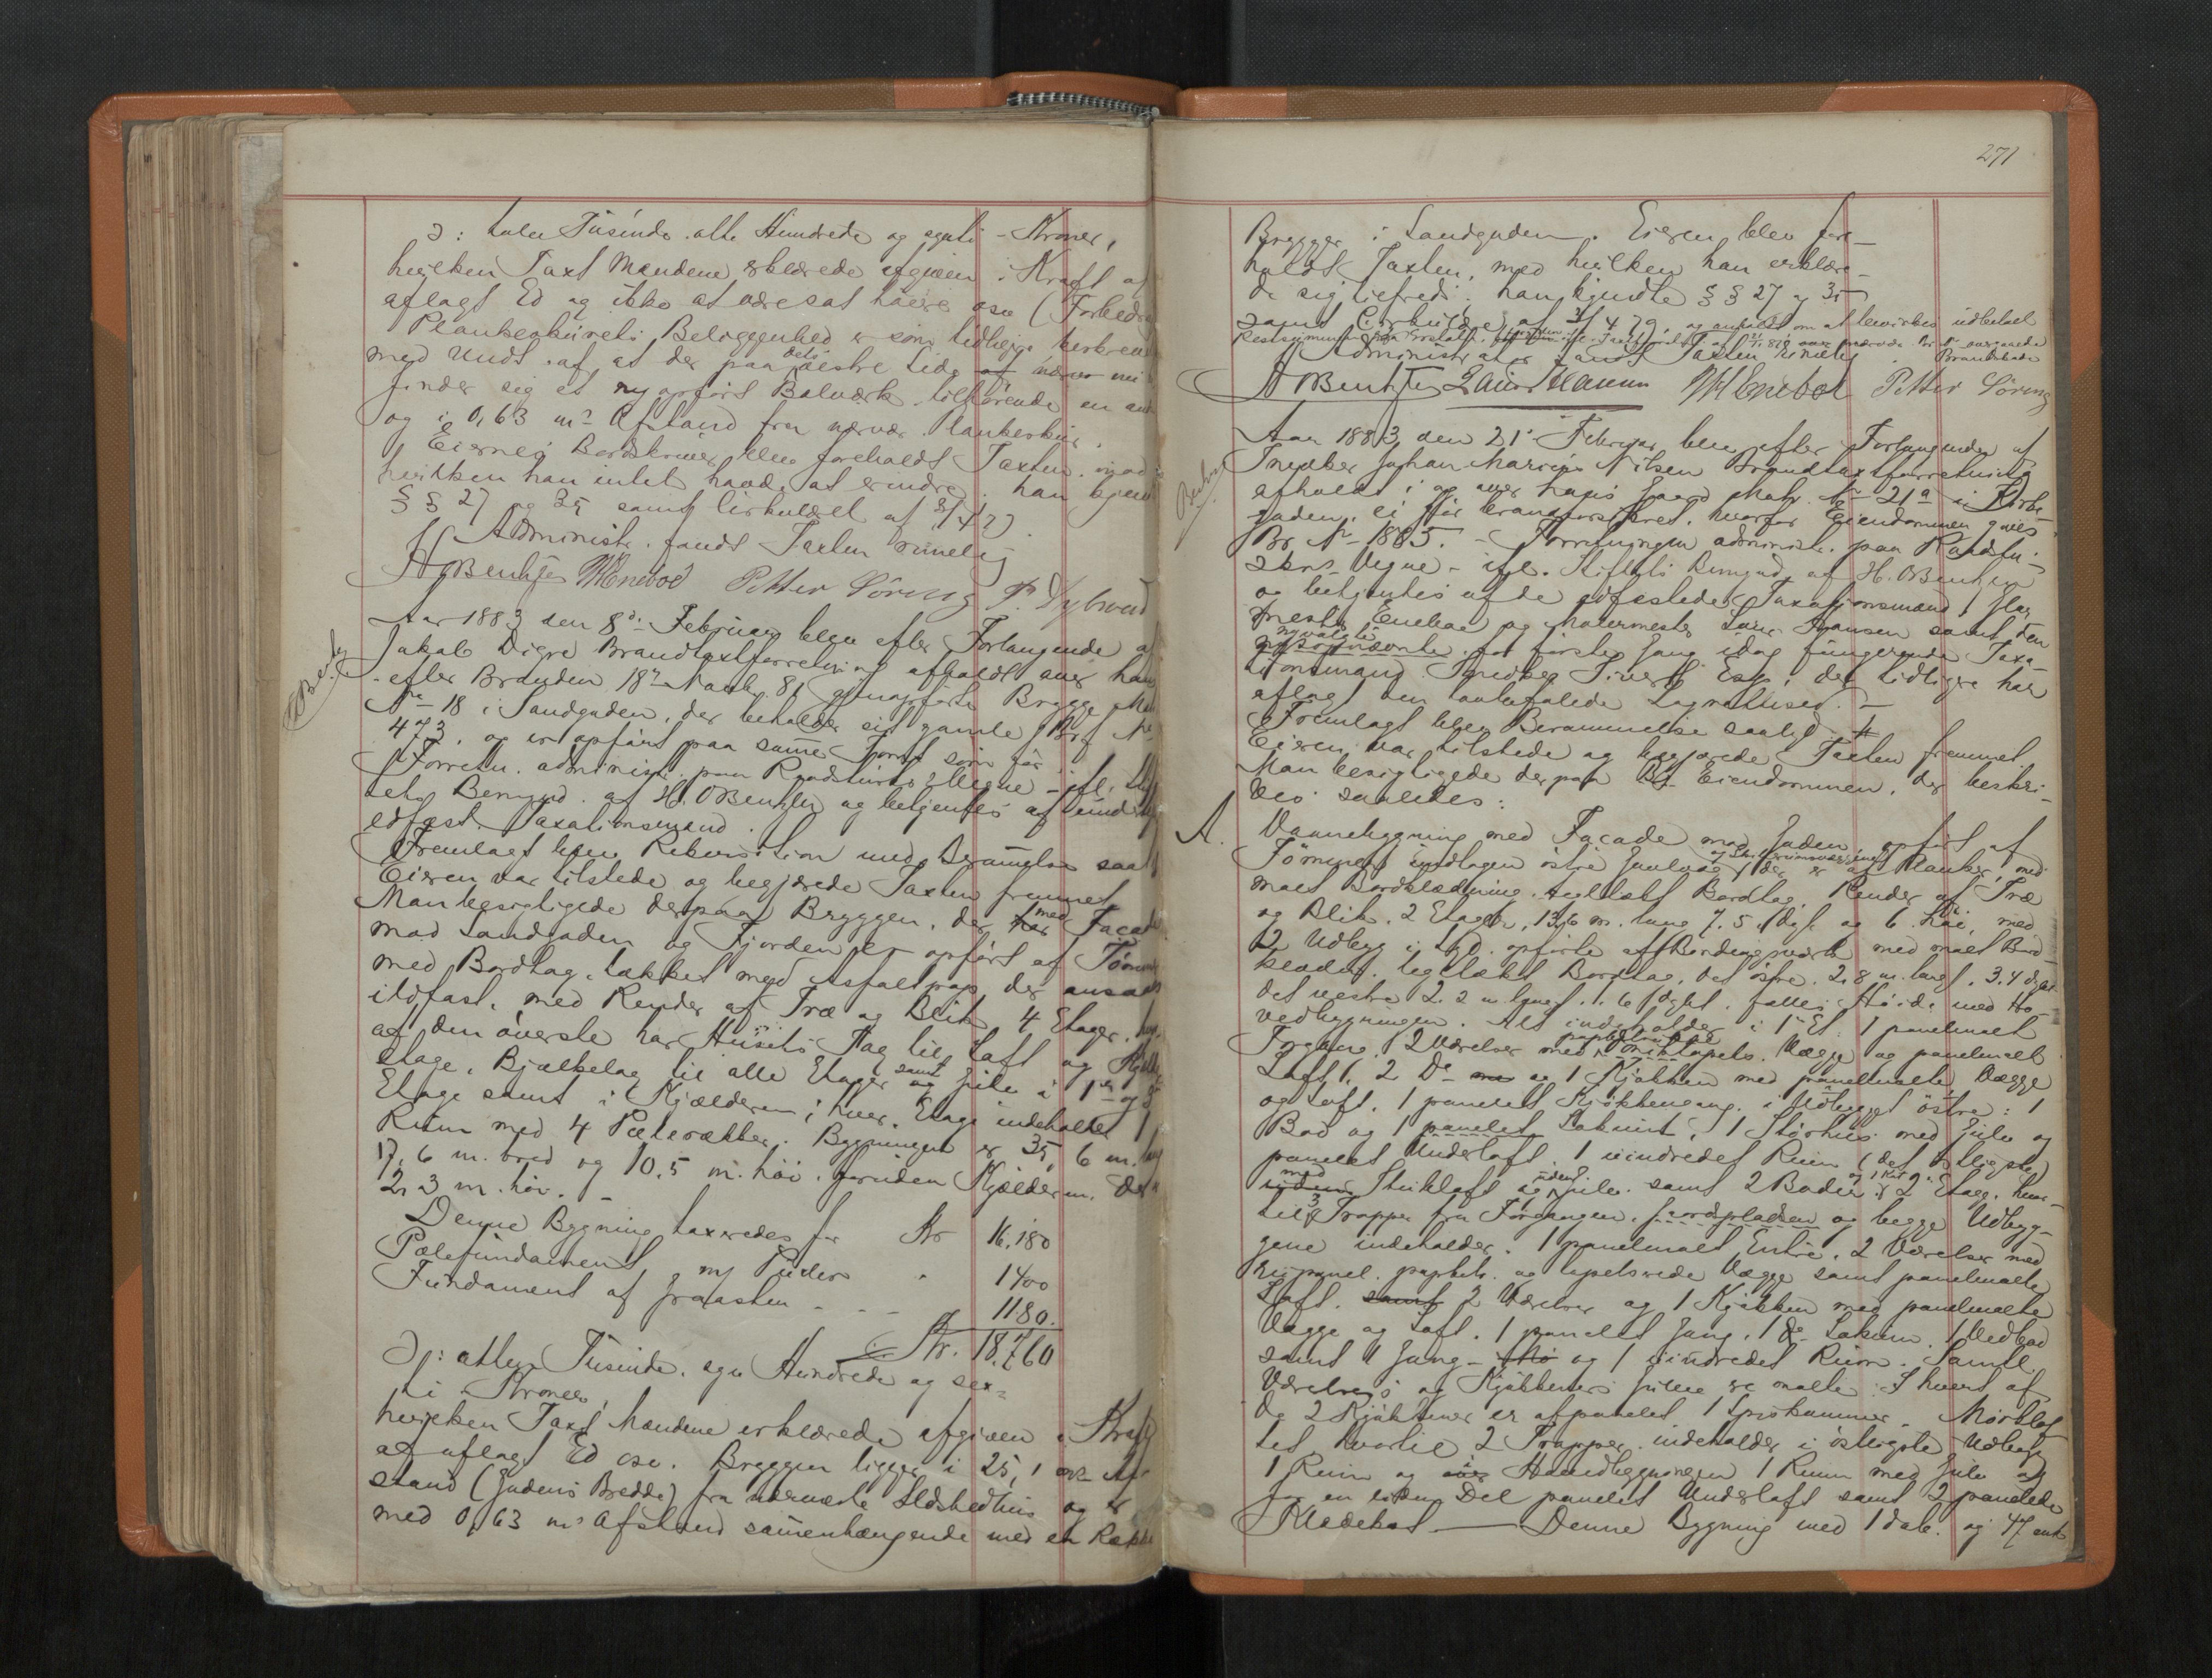 ↄ: tolv Tusinde otte Hundrede og syvti - Kroner,
hvilken Taxt Mændene erklærede afgiven i Kraft af
aflagt Ed og ikke at være sat høiere osv (Forbedr
Plankeskurets Beliggenhed er som tidligere beskreven
med Undt. af, at der paa dets vestre Side
finder sig et ny opført Bolværk tilhørende en
og i 0,63 m? Afstand fra nærvær. Plankeskur.
Eiernes Bordskriver blev foreholdt Taxten, mod
hvilken han intet havde at erindre. han kjendte
§ § 27 og 35 samt Cirkulæret af 3/4 79.
Administr. fandt Taxten rimelig
H OBentzen MEnebod Petter Søreng P. Dybvad
HOBentz
Aar 1883 den 8de Februar blev efter Forlangende af
Jakob Digre Brandtaxtforretning afholdt over han
efter Branden 18de Novbr. 81 gjenopførte Brygge Mat
No 18 i Sandgaden, der beholder sit gamle Br. No
473, og er opført paa samme Tomt som før.
Forretn. administr. paa Raadstuens Vegne - ifl. Stift
lets Bemynd. af H. OBentzen og betjentes af undert
edfæst. Taxationsmænd.
Fremlagt blev Rekvisition med Berammelse saal
Eieren var tilstede og begjærede Taxten fremmet.
Man besigtigede derpaa Bryggen, der med Facade
mod Sandgaden og Fjorden er opført af Tømmer
med Bordtag, tækket med Asfaltpap, der ansaaes
ildfast, med Render af Træ og Blik 4 Etager, hvor
af den øverste har Husets Tag til Loft og Kjelder
etage, Bjælkelag til alle Etager samt Gulv i 1ste og 2
Etage samt i Kjælderen; hver Etage indeholder 1
Rum med 4 Pælerækker. Bygningen er 35,6 m. lang
17,6 m. bred og 10,5 m. høi, foruden Kjælderen, der er
2,3 m. høi. -
Denne Bygning taxeredes for Kr 16,180
Pælefundament m/ Puder " 1400
Fundament af Graasten - - - 1180.
Kr. 18,760
ↄ: atten Tusinde, syv Hundrede og sex=
ti Kroner,
hvilken Taxt Mændene erklærede afgiven i Kraft
af aflagt Ed osv. Bryggen ligger i 25,1 m? Af-
stand (Gadens Bredde) fra nærmeste Ildstedhus og er
med 0,63 m? Afstand sammenhængende med en Række
271
Brygger i Sandgaden. Eieren blev fore-
holdt Taxten, med hvilken han erklære-
de sig tilfreds. han kjendte § § 27 og 35
samt Cirkulære af 3/4 79, og anholdt om at bevirkes udbetalt
Administrator fandt Taxten rimelig.
H OBentzen Laur Hansen MHEnebod Petter Søreng
Bentzen
Aar 1883 den 21de Februar blev efter Forlangende af
Snedker Johan Marius Nilsen Brandtaxtforretning
afholdt i og over hans Gaard Matr. No 21a i Kirke
gaden, ei før brandforsikret, hvorfor Eiendommen gaves
Br No 1885. - Forretningen administr. paa Raadstu-
ens Vegne - ifl. Stiftets Bemynd. af H. OBentzen
og betjentes af de edfæstede Taxationsmænd, Glar
mester Enebod og Malermester Laur Hansen samt den
nyvalgte for første Gang idag fungerende Taxa-
tionsmand Snedker Sivert Esp, der tidligere har
aflagt den anbefalede Lagrettesed. -
Fremlagt blev Berammelse saalyd. #
Eieren var tilstede og begjærede Taxten fremmet.
Man besigtigede derpaa Eiendommen, der beskri-
ves saaledes:
A. Vaanebygning med Façade mod Gaden, opført af
Tømmer undtagen østre Gavlvæg og Skillerumsvægge der er af Planker, med
malt Bordklædning, teglhængt Bordtag, Render af Træ
og Blik. 2 Etager, 13,6 m. lang 7.5 dyb og 6 høi, med
2 Udbyg i Syd, opførte af Bindingsværk med malt Bord
klædn. teglhængt Bordtag, det østre 2.8 m. langt, 3.4 dybt
det vestre 2.2 m. langt, 1.6 dybt, fælles Høide med Ho-
vedbygningen. Alt indeholder i 1ste Et. 1 panelmalt
Forgang, 2 Værelser med Vægge og panelmalt
Loft, 2 Do og 1 Kjøkken med panelmalte Vægge
og Loft, 1 panelet Kjøkkengang, i Udbygget østre: 1
Bod og 1 panelet Lokum, 1 Størhus med Gulv og
panelet Underloft, 1 uindredet Rum (det østligste)
med Stukloft uden Gulv samt 2 Boder. 2 Etage, hvor-
til 3 Trapper fra Forgangen, Gaardspladsen og begge Udbyg-
gene indeholder. 1 panelmalt Entré, 2 Værelser med
Vægge samt panelmalte
Loft, 2 Værelser og 1 Kjøkken med panelmalte
Vægge og Loft, 1 panelet Gang, 1 do Lokum, 1 Vedbod
samt 1 Gang - og 1 uindredet Rum. Samtl.
Værelsers og Kjøkkeners Gulve ere malte. I hvert af
de 2 Kjøkkener er afpanelet 1 Spiskammer. Mørklof
tet, hvortil 2 Trapper indeholder i østligste Udbyg
1 Rum og Hovedbygningen 1 Rum med Gulv og
for en liden Del panelet Underloft samt 2 panelede
Klædekot ——— Denne Bygning med 1 dob. og 47 enk